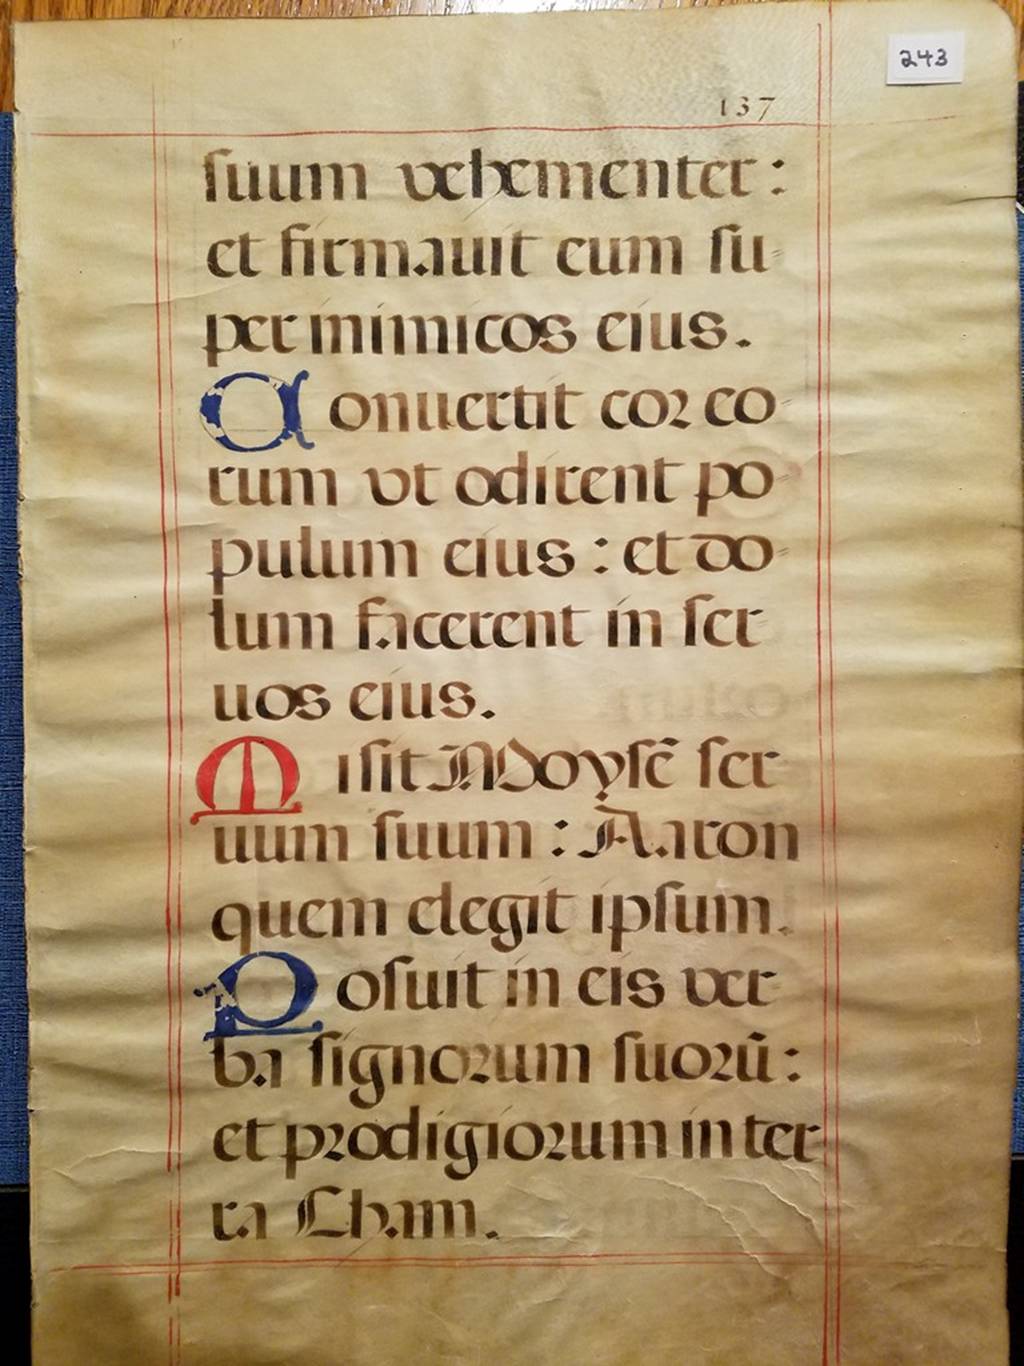 243
137
ſuum vehementer:
et firmauit eum ſu-
per inimicos eius.
Conuertit cor eo-
rum vt odirent po-
pulum eius: et do-
lum facerent in ſer
uos eius.
Miſit Moyſē ſer
uum ſuum: Aaron
quem elegit ipſum.
Poſuit in eis ver
ba ſignorum ſuorū:
et prodigiorum in ter
ra Cham.